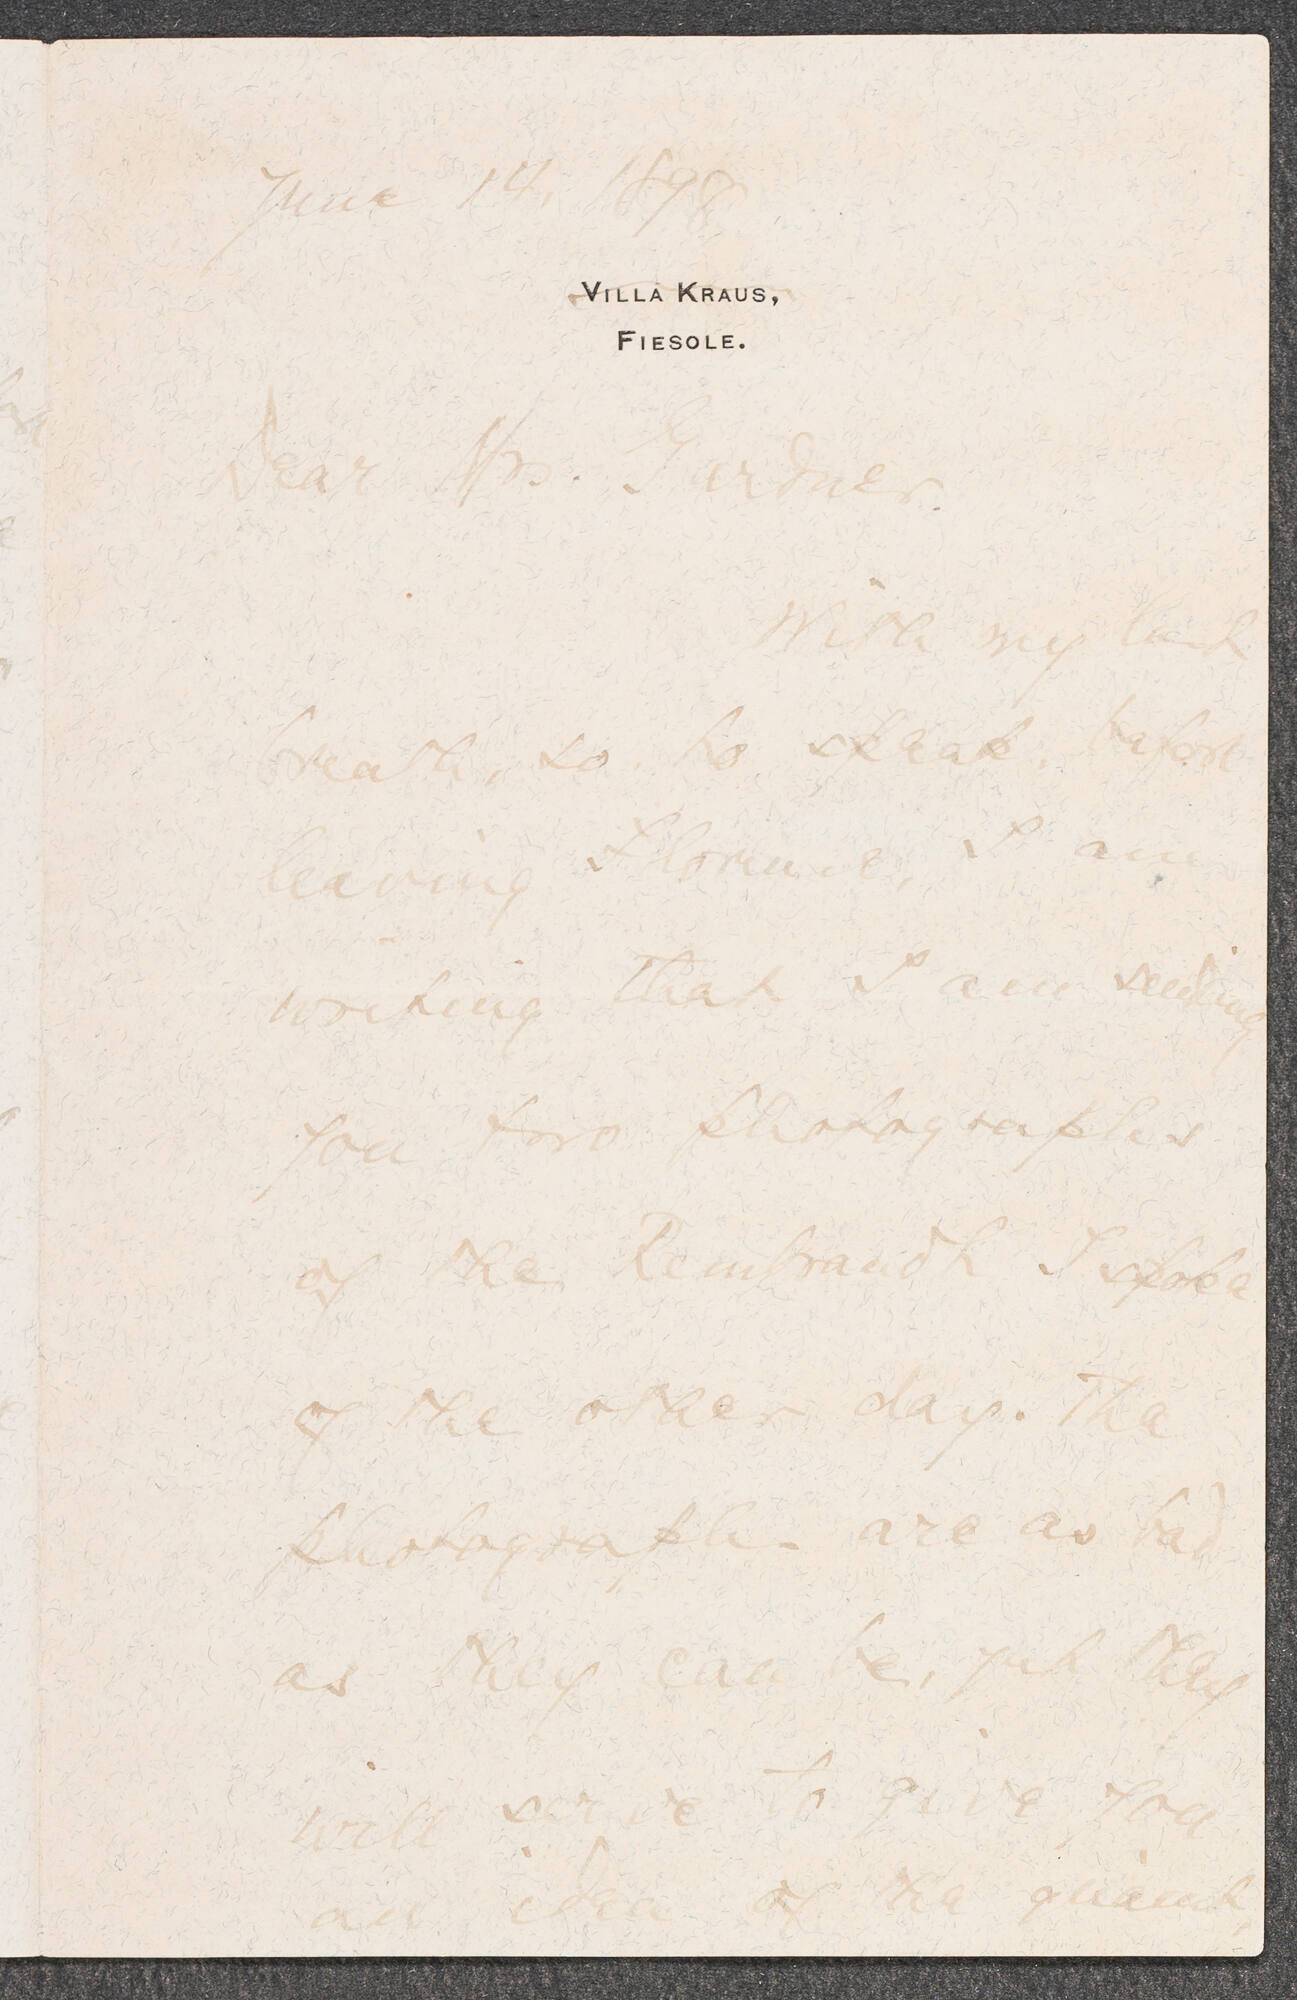 June 14, 1898
VILLA KRAUS,
FIESOLE.
Dear Mrs. Gardner.
With my last
breath, so to speak, before
leaving Florence, I am
writing that I am sending
you two photographs
of the Rembrandt I spoke
of the other day. The
photographs are as bad
as they can be, yet they
will serve to give you
an idea of the quaint,